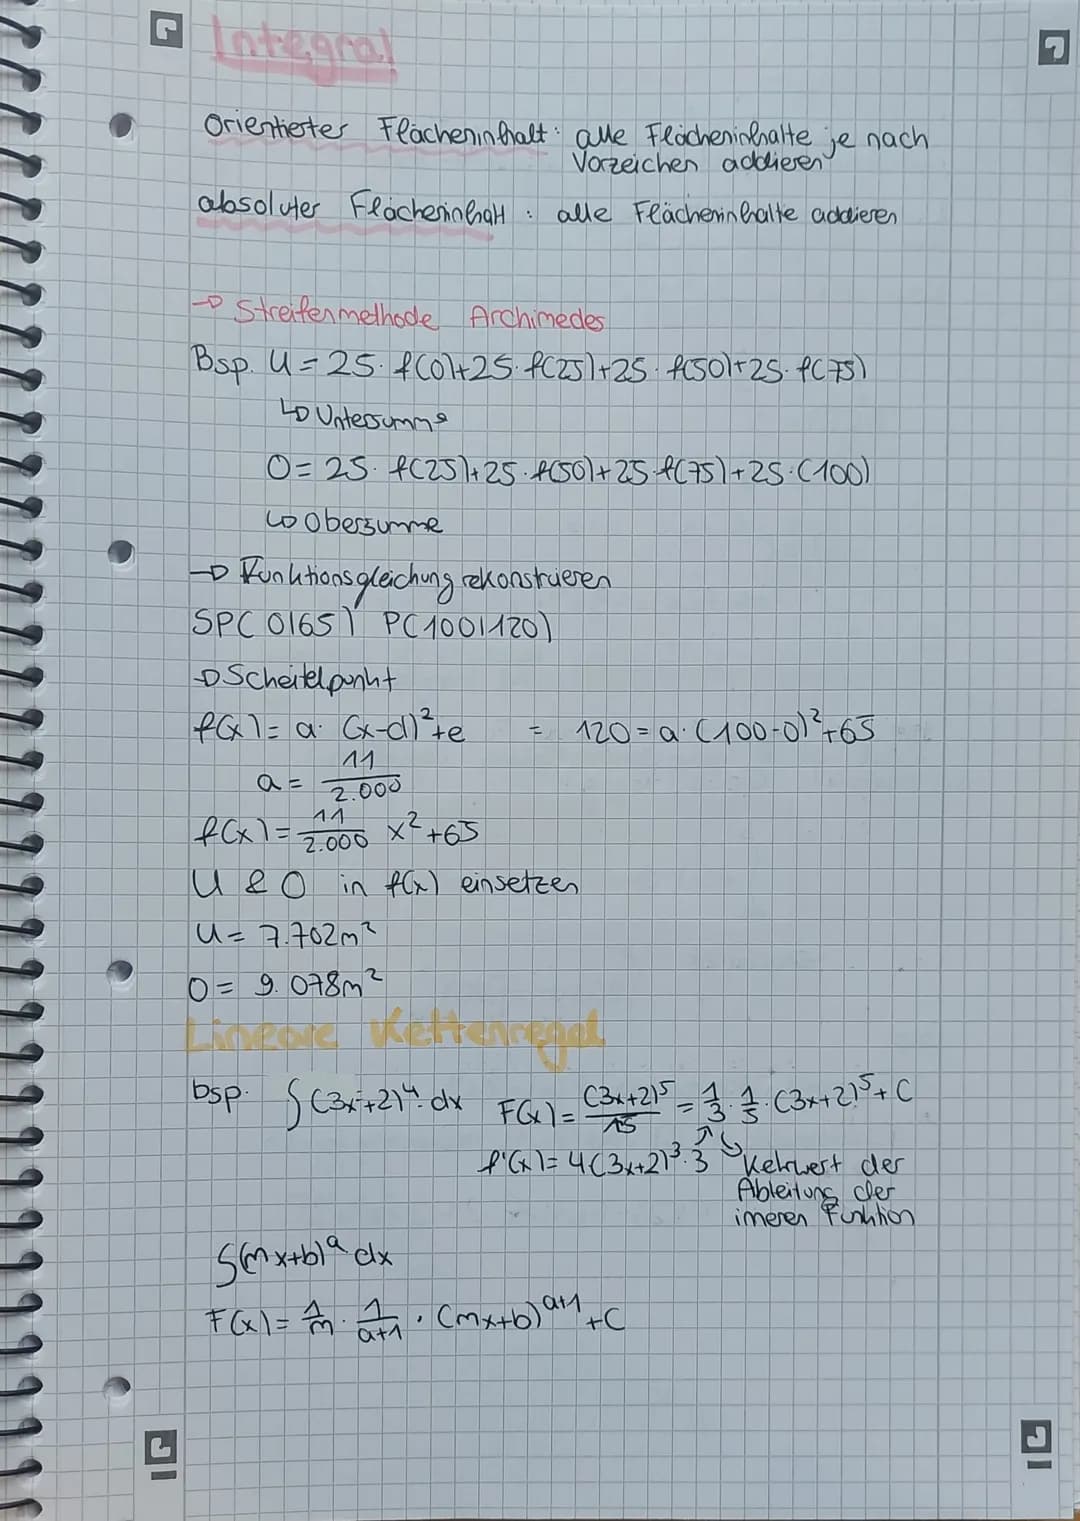 Integral
Orientierter Flächeninhalt: alle Flächeninhalte je nach
Vorzeichen addieren
absoluter Flächeninhalt: alle Flächeninhalte addieren
→ Streifenmethode Archimedes
Bsp. U = 25· f(0)+25· f(25)+25· f(50)+25· f(75)
↳ Untersumme
O = 25· f(25)+25· f(50)+25· f(75)+25·(100)
↳ Obersumme
→ Funktionsgleichung rekonstruieren
SP(0|65) P(100|120)
→ Scheitelpunkt
f(x) = a· (x-d)²+e = 120 = a·(100-0)²+65
a = 11/2.000
f(x) = 11/2.000 x²+65
U & O in f(x) einsetzen
U = 7.702m²
O = 9.078m²
Lineare Kettenregel
bsp. ∫(3x+2)⁴· dx F(x) = (3x+2)⁵/15 = 1/3 · 1/5 ·(3x+2)⁵+C
f'(x) = 4(3x+2)³·3 Kehrwert der
Ableitung der
imeren Funktion
∫(mx+b)ᵃ dx
F(x) = 1/m · 1/a+1 · (mx+b)ᵃ⁺¹ +C